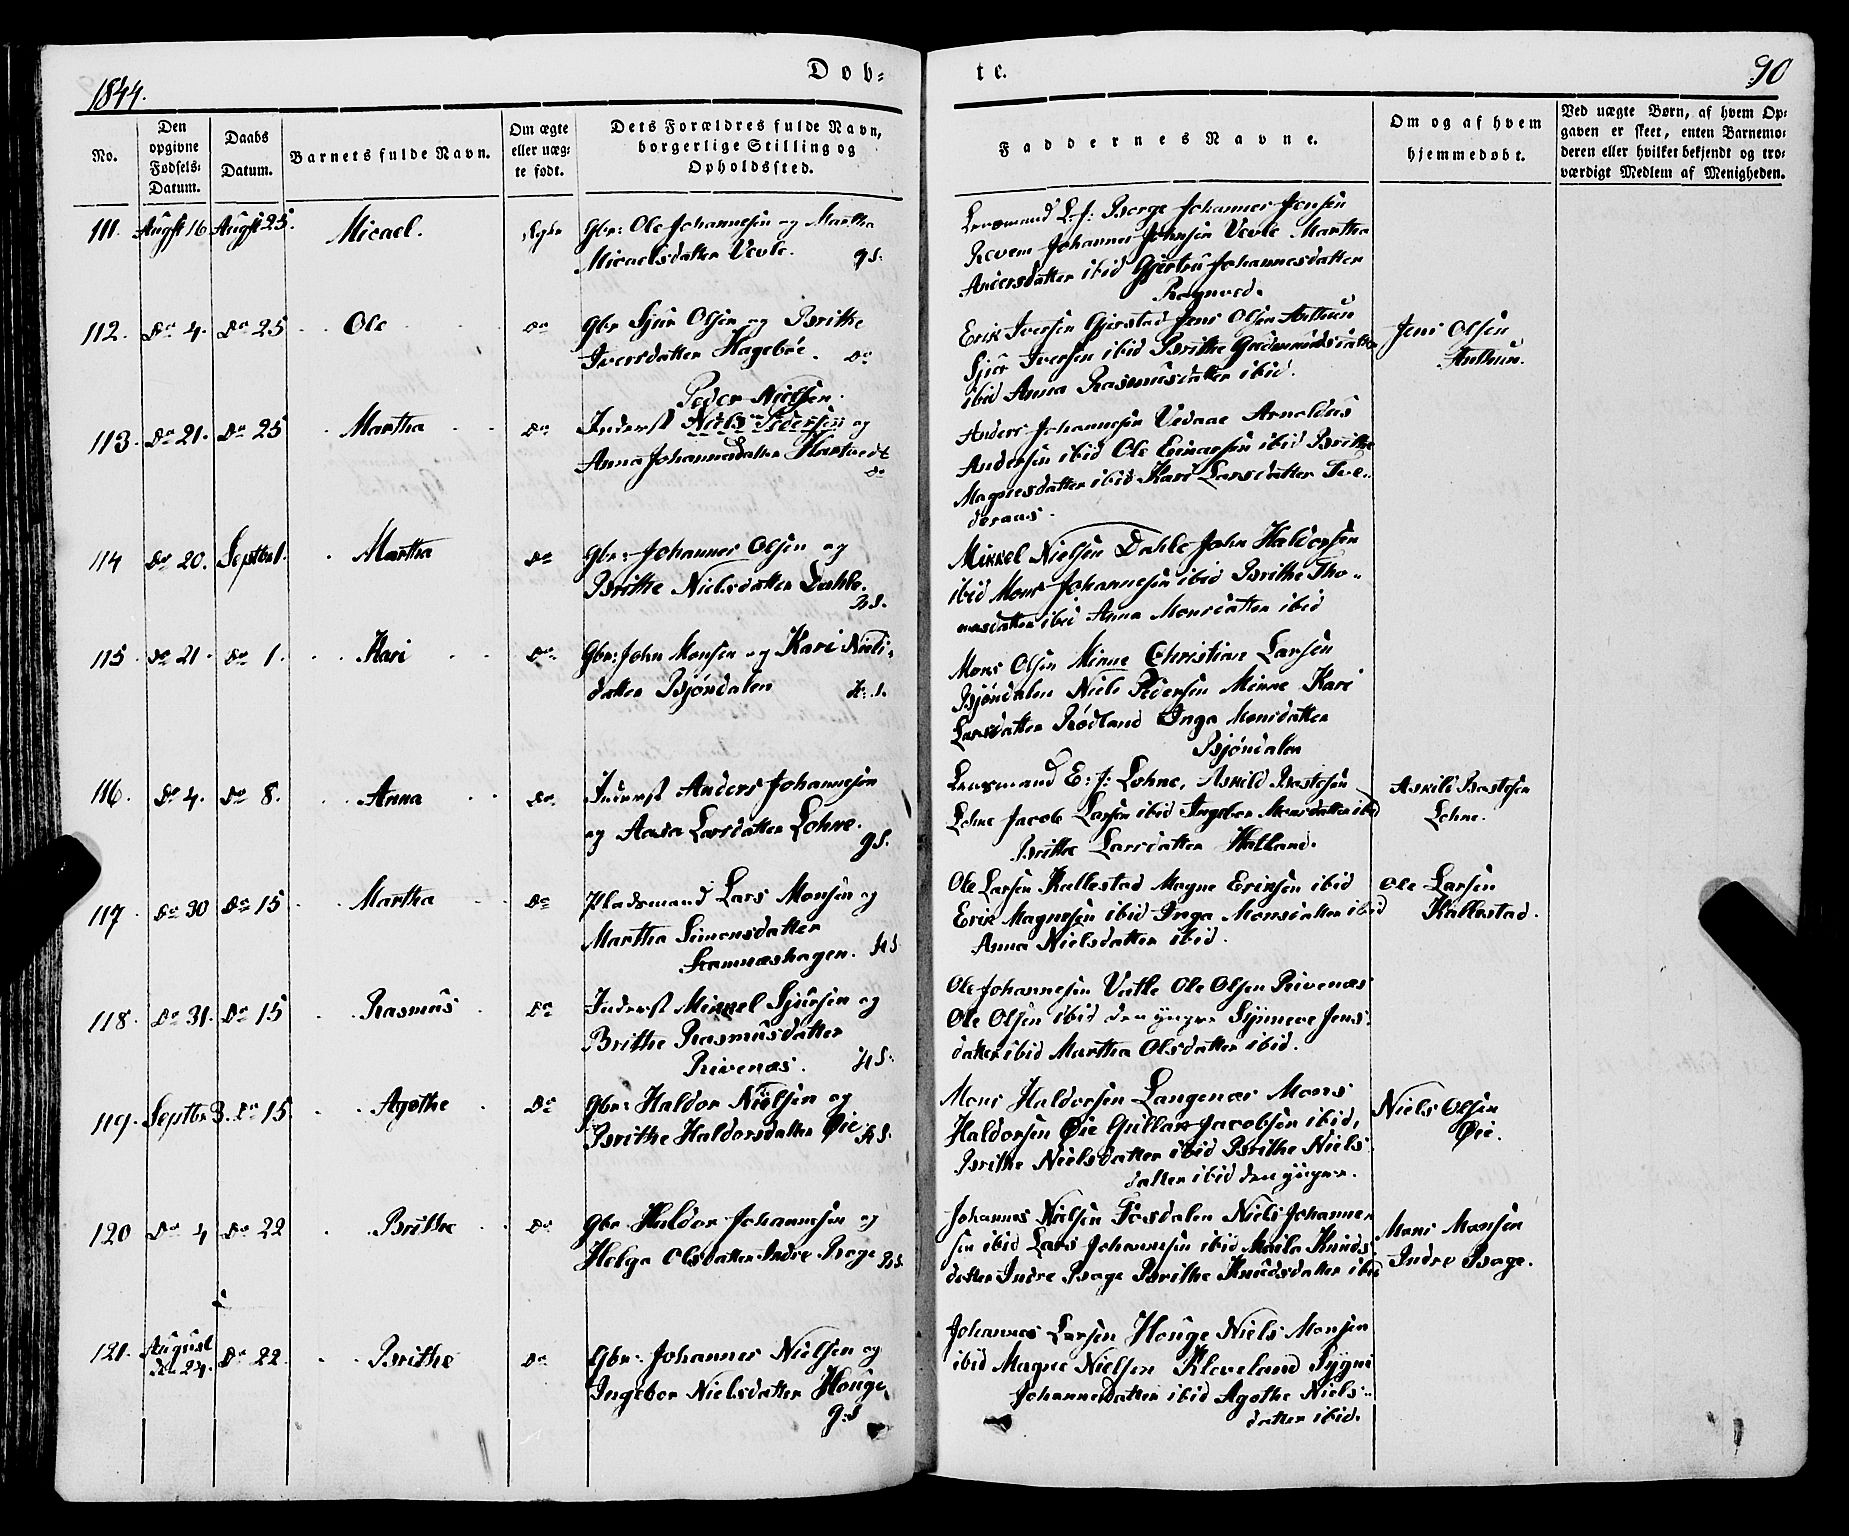 1844.
Døb-
te.
90
No.
Den opgivne Fødsels-Datum.
Daabs Datum.
Barnets fulde Navn.
Om ægte eller uægte født.
Dets Forældres fulde Navn, borgerlige Stilling og Opholdssted.
Faddernes Navne.
Om og af hvem hjemmedøbt.
Ved uægte Børn, af hvem Opgaven er skeet, enten Barnemoderen eller hvilket bekjendt og troværdigt Medlem af Menigheden.
111. Augst 16 Augst 25. Micael. Ægte
Gbr: Ole Johannesen og Martha
Micaelsdatter Vevle. gS.
Lensmand L. f: Børge Johannes Jensen
Revem Johannes Johnsen Vevle Martha
Andersdatter ibid Gjertru Johannesdatter
112. Do 4. Do 25 Ole do
Gbr Sjur Olsen og Brithe
Iversdatter Hagebøe. do
Erik Iversen Gjerstad Jens Olsen Anthun
Sjur Iversen ibid Brithe Gudmundsdatter
ibid Anna Rasmusdatter ibid.
Jens Olsen
Anthun.
113. Do 21. Do 25 Martha do
Peder Nielsen.
Inderst Niels Pedersen og
Anna Johannesdatter Hartvedt
do
Anders Johannesen Vedaae Arnoldus
Andersen ibid Ole Einarsen ibid Brithe
Magnesdatter ibid Kari Larsdatter Tve-
deraas.
114 Do 20. Septbr 1. Martha do
Gbr: Johannes Olsen og
Brithe Nielsdatter Dahle.
Mikkel Nielsen Dahle John Haldorsen
ibid Mons Johannesen ibid Brithe Tho-
masdatter ibid Anna Monsdatter ibid
115 Do 21. do 1. Kari do
Gbr: John Monsen og Kari Niels-
datter Bjørndalen
Mons Olsen Minne Christian Larsen
Bjørndalen Niels Pedersen Minne Kari
Larsdatter Rødland Inga Monsdatter
Bjørndalen
116. Do 4. Do 8. Anna do
Inderst Anders Johannesen
og Aasa Larsdatter Lohne. gS.
Lensmand E: f: Lohne, Askild Bastesen
Lohne Jacob Larsen ibid Ingebor Monsdatter ibid
Brithe Larsdatter Halland.
Askild Bastesen
Lohne.
117 Do 30 Do 15 Martha do
Pladsmand Lars Monsen og
Martha Simonsdatter
Hamnashagen. HS
Ole Larsen Kallestad Magne Eriksen ibid
Erik Magnesen ibid Inga Monsdatter ibid
Anna Nielsdatter ibid.
Ole Larsen
Kallestad.
118. Do 31. Do 15 Rasmus do
Inderst Mikkel Sjursen og
Brithe Rasmusdatter
Rivenæs. HS.
Ole Johannesen Vatle Ole Olsen Rivenæs
Ole Olsen ibid den yngre Synneve Jens-
datter ibid Martha Olsdatter ibid.
119. Septbr 3. Do 15 Agothe Do
Gbr: Haldor Nielsen og
Brithe Haldorsdatter Øie HS.
Mons Haldorsen Langenæs Mons
Haldorsen Øie Gullak Jacobsen ibid,
Brithe Nielsdatter ibid Brithe Niels-
datter ibid den yngre.
Niels Olsen
Øie.
120 Do 4 Do 22 Brithe Do
Gbr Haldor Johannesen og
Helga Olsdatter Indre Boge
Johannes Nielsen Fosdalen Niels Johanne-
sen ibid Lars Johannesen ibid Marita Knuds-
datter Indre Boge Brithe Knudsdatter ibid
Mons Monsen
Indre Boge.
121. August do 24. Do 22. Brithe Do
Gbr: Johannes Nielsen og
Ingebor Nielsdatter Houge
g:S
Johannes Larsen Houge Niels Monsen
ibid Magne Nielsen Kleveland Sygni
Johannesdatter ibid Agothe Niels-
datter ibid.